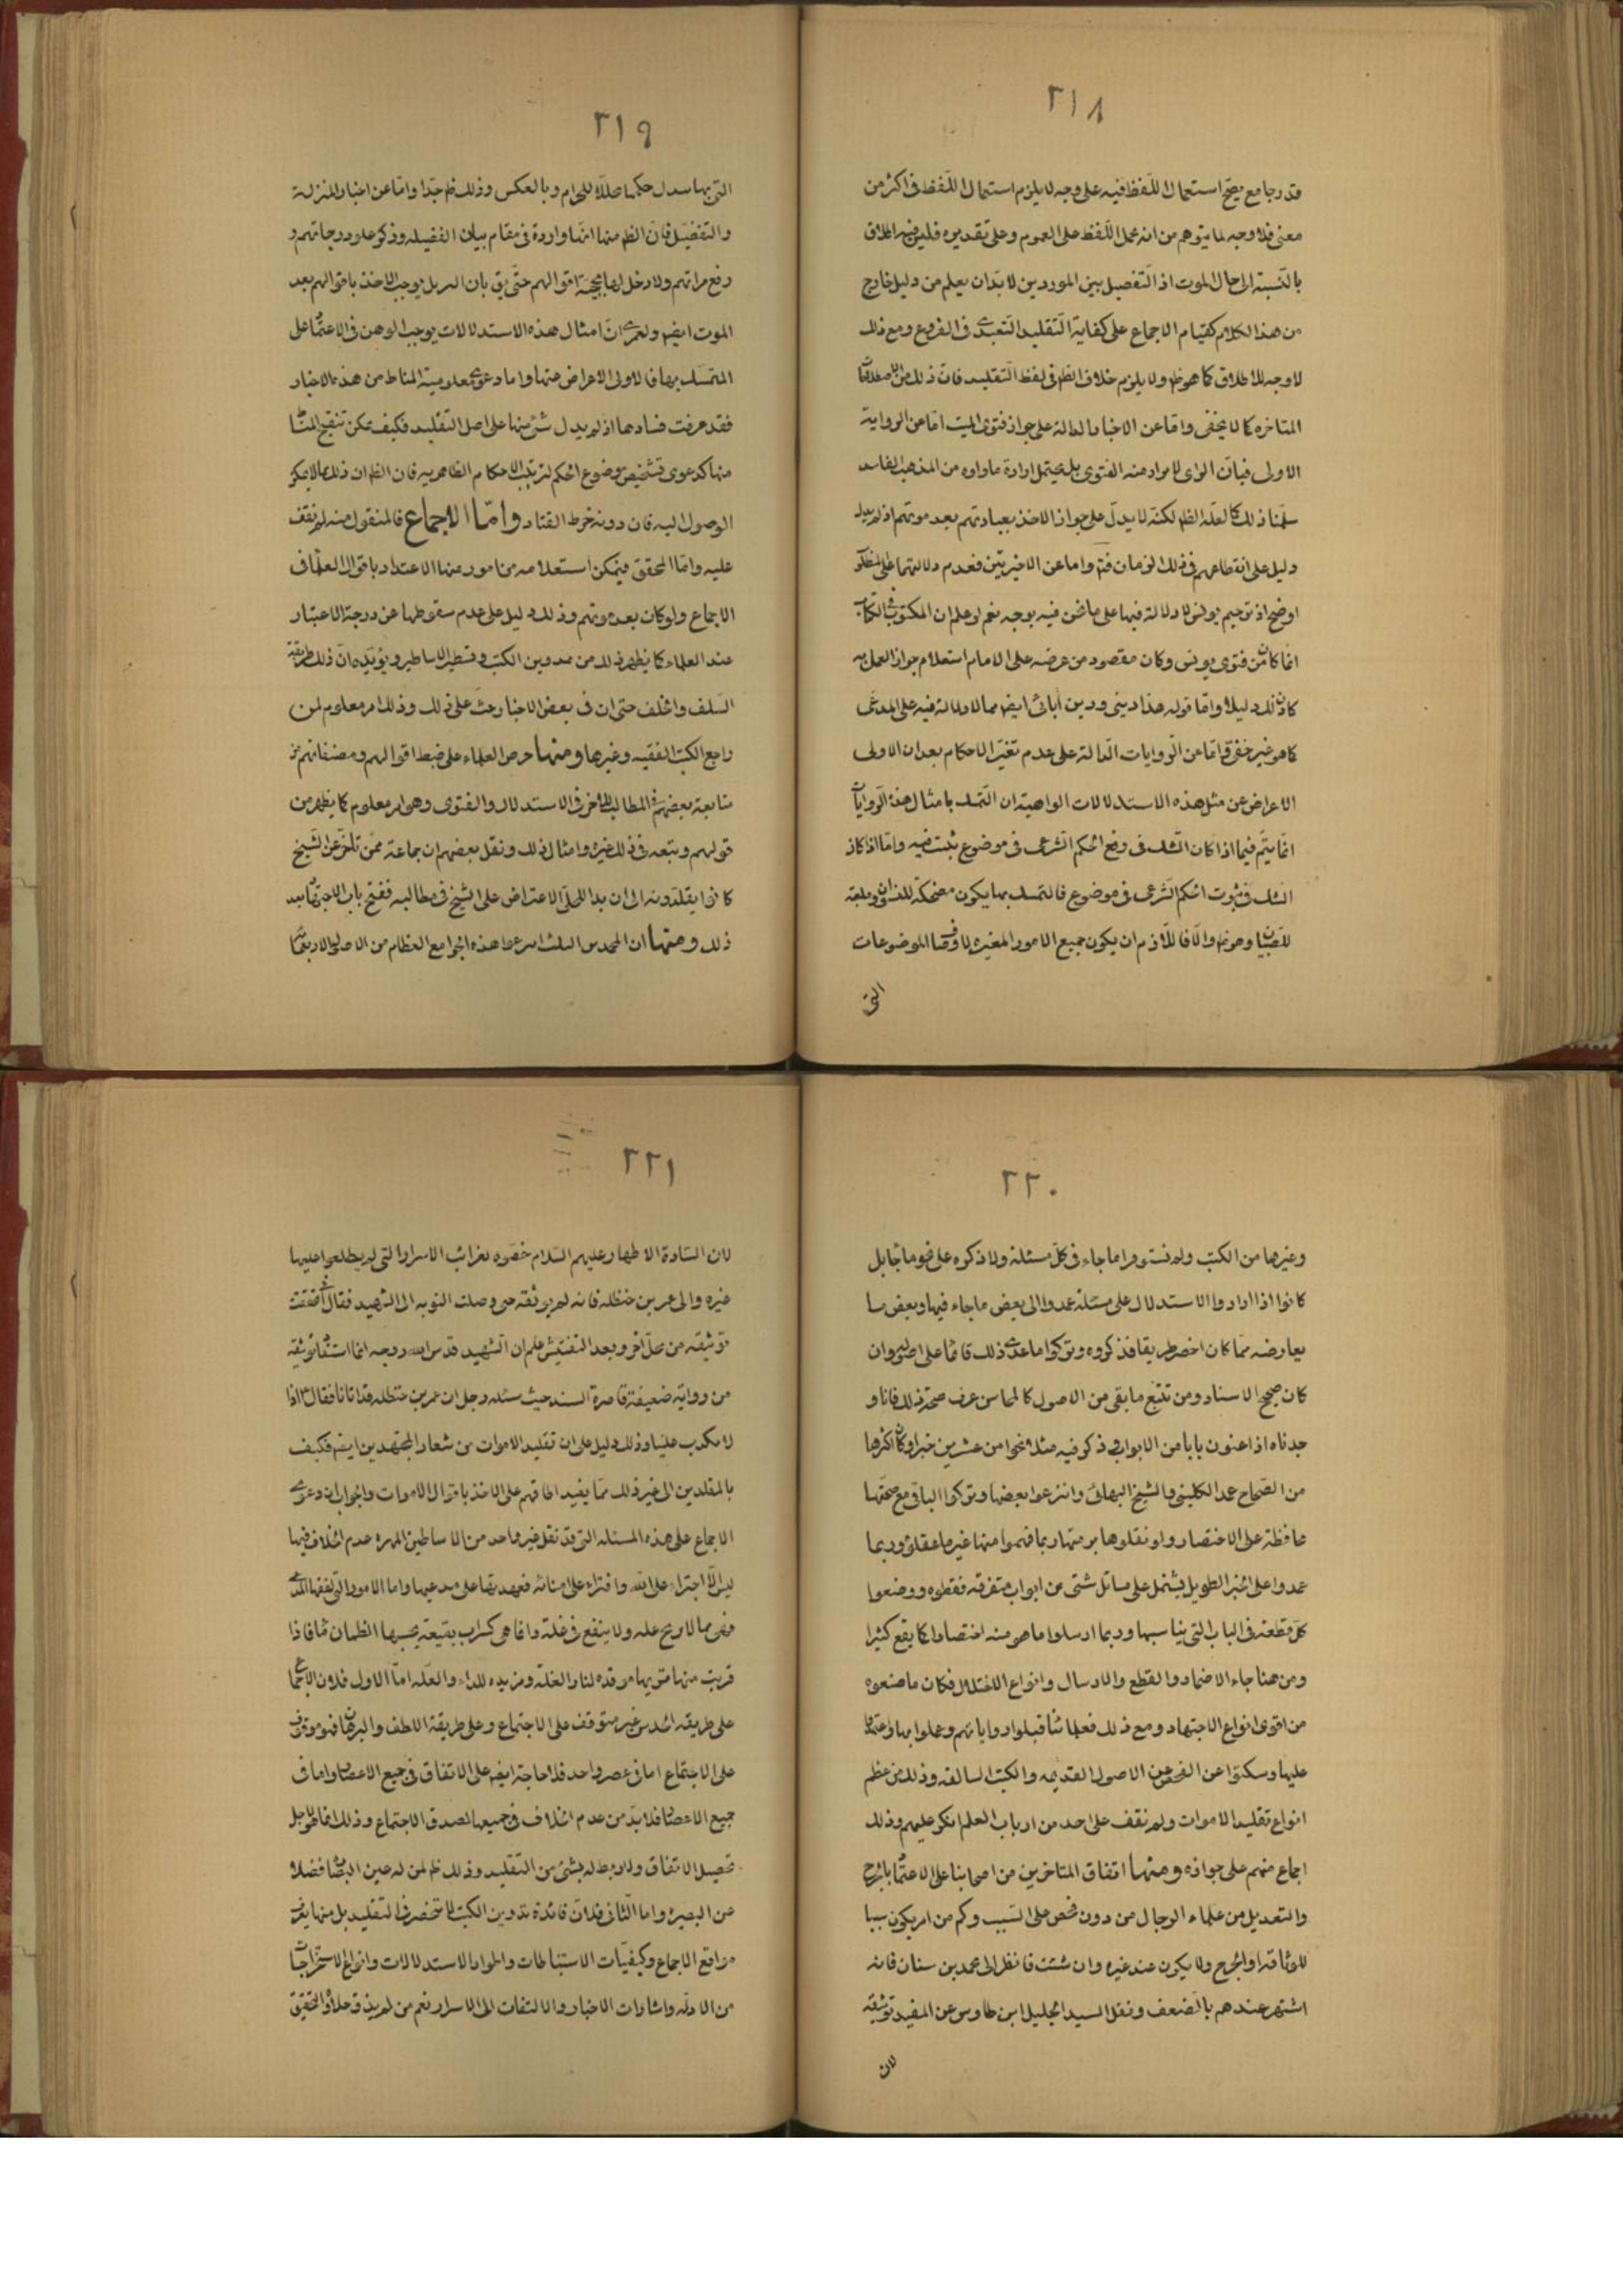 ٢١٨
قدر جامع يصحّ استعمال اللّفظ فيه على وجه لا يلزم استعمال اللّفظ فى اكثر من
معنى فلا وجه لما يتوهم من انه عمل اللّفظ على العموم وعلى تقديره فليس فيه اطلاق
بالنّسبة الى حال الموت اذ التّفصيل بين الموردين لا بدّ ان يعلم من دليل خارج
من هذا الكلام كقيام الاجماع على كفاية التّقليد التّعبدى فى الفروع ومع ذلك
لا وجه للاطلاق كما هو ظ ولا يلزم خلاف الظ فى لفظ التّقليد فانّ ذلك من الاصطلاحات
المتاخره كما لا يخفى وامّا عن الاخبار الدالة على جواز فتوى الميت امّا عن الرواية
الاولى فبانّ الراى لا يراد منه الفتوى بل يحتمل ارادة ما راوه من المذهب الفاسد
سلّمنا ذلك كما لعلّه الظ لكنّه لا يدلّ على جواز الاخذ بعباداتهم بعد موتهم اذ لم يدل
دليل على انقطاعهم فى ذلك الزمان فتم واما عن الاخيرتين فعدم دلالتهما على المنظور
اوضح اذ ترحيم يونس لا دلالة فيها على ما نحن فيه بوجه نعم لو علم ان المكتوب فى الكتاب
انما كان من فتوى يونس وكان مقصود من عرضه على الامام استعلام جواز العمل به
كان ذلك دليلا وامّا قوله هذا دينى ودين آبائى ايض مما لا دلالة فيه على المدعى
كما هو غير خفى وامّا عن الروايات الدالة على عدم تغيّر الاحكام بعد ان الاولى
الاعراض عن مثل هذه الاستدلالات الواهية ان التمسك بامثال هذه الروايات
انما يتم فيما اذا كان الشك فى رفع الحكم الشرعى فى موضوع يثبت فيه وامّا اذا كان
الشك فى ثبوت الحكم الشرعى فى موضوع فالتمسك بها يكون مضحكة للنسوان وملعبة
للصبيان وهو ظ والّا فاللّازم ان يكون جميع الامور المغيره لاوصاف الموضوعات
التى
٢١٩
التى بها يبدل حكمها حلالا للحرام وبالعكس وذلك ظ جدّا وامّا عن اخبار المنزلة
والتفضيل فانّ الظ منها انّها واردة فى مقام بيان الفضيله وذكر علو درجاتهم و
رفع مراتبهم ولا دخل لها بحجية اقوالهم حتّى يق بان البدل يوجب الاخذ باقوالهم بعد
الموت ايض ولعمرى انّ امثال هذه الاستدلالات يوجب الوهن فى الاعتماد على
المتمسك بها فالاولى الاعراض عنها واما دعوى معلومية المناط من هذه الاخبار
فقد عرفت فسادها اذ لم يدل شئ منها على اصل التقليد فكيف يمكن تنقيح المناط
منها كدعوى تشخيص موضوع الحكم لترتيب الاحكام الظاهريه فان الظ ان ذلك مما لا يمكن
الوصول اليه فان دونه خرط القتاد وامّا الاجماع فالمنقول منه لم نقف
عليه وامّا المحقق فيمكن استعلامه من امور منها الاعتداد باقوال العلماء فى
الاجماع ولو كان بعد موتهم وذلك دليل على عدم سقوطها عن درجة الاعتبار
عند العلماء كما يظهر ذلك من تدوين الكتب وتسطير الاساطير ويؤيده انّ ذلك طريقة
السّلف والخلف حتى ان فى بعض الاخبار حثّ على ذلك وذلك امر معلوم لمن
راجع الكتب الفقيه وغيرها ومنها حرص العلماء على ضبط اقوالهم ومصنفاتهم من
متابعة بعضهم فى المطالب للآخر فى الاستدلال والفتوى وهو امر معلوم كما يظهر من
قولهم وتبعه فى ذلك غيره وامثال ذلك ونقل بعضهم ان جماعة ممّن تاخّر عن الشّيخ
كانوا يقلدونه الى ان بدا للحلّى الاعتراض على الشيخ فى مطالبه ففتح باب الاجتهاد بعد
ذلك ومنها ان المحمدين الثلث اسرعوا هذه الجوامع العظام من الاصول الاربعمائة
٢٢٠
وغيرها من الكتب ولم نستوفوا ما جاء فى كلّ مسئلة ولا ذكره على نحو ما جاء بل
كانوا اذا ارادوا الاستدلال على مسئلة عمدوا الى بعض ما جاء فيها وبعض ما
يعارضه ممّا كان اخصر طريقا فذكروه وتركوا ما عدى ذلك قائما على اصوله وان
كان صحيح الاسناد ومن تتبّع ما بقى من الاصول كالمحاسن عرف صحّة ذلك فانا و
جدناه اذا عنون بابا من الابواب وذكر فيه مثلا نحوا من عشرين خبرا وكان اكثرها
من الصّحاح عمد الكلينى والشيخ البهائى وانتزعوا بعضها وتركوا الباقى مع صحّتها
محافظة على الاختصار ولو نقلوها برمتها ربما فهموا منها غير ما عقلوا وربما
عمدوا على الخبر الطويل يشتمل على مسائل شتى من ابواب متفرقه فقطوه ووضعوا
كل قطعة فى الباب التى يناسبها وربما ارسلوا ما هو مسند اختصارا كما يقع كثيرا
ومن هنا جاء الاضمار والقطع والارسال وانواع الاختلال فكان ما صنعوه
من اقوى انواع الاجتهاد ومع ذلك فعلمائنا قبلوا رواياتهم وعملوا بها واعتمدوا
عليها وسكتوا عن الفحص عن الاصول القديمه والكتب السالفه وذلك من عظم
انواع تقليد الاموات ولم نقف على احد من ارباب العلم انكر عليهم وذلك
اجماع منهم على جوازه ومنها اتفاق المتاخرين من اصحابنا على الاعتماد بالجرح
والتعديل من علماء الرجال من دون فحص على السّبب وكم من امر يكون سببا
للوثاقة او الجرح ولا يكون عند غيره وان شئت فانظر الى محمد بن سنان فانه
اشتهر عندهم بالضعف ونقل السيد الجليل ابن طاوس عن المفيد توثيقه
لان
٢٢١
لان السّادة الاطهار عليهم السّلام خصّوه بغرائب الاسرار التى لم يطلعوا عليها
غيره والى عمر بن حنظله فانه لم يوثقه حتى وصلت النوبه الى الشهيد فقال
توثيقه من محلّ آخر وبعد التفتيش علم ان الشهيد قدس الله روحه انما استفاد توثيقه
من رواية ضعيفة قاصرة السند حيث سئله رجل ان عمر بن حنظله قد اتانا فقال اذا
لا يكذب علينا وذلك دليل على ان تقليد الاموات من شعار المجتهدين ايض فكيف
بالمقلدين الى غير ذلك ممّا يفيد اتفاقهم على الاخذ باقوال الاموات والجواب ان دعوى
الاجماع على هذه المسئلة التى قد نقل غير واحد من الاساطين المهره عدم الخلاف فيها
ليس الّا اجتراء على اللّه وافتراء على امنائه فعهدتها على مدعيها واما الامور التى لفقها المدعى
فهى مما لا يروح عله ولا ينفع فى غلة وانما هى كسراب بقيعة يحسبها الظمان ماء فاذا
قربت منها تقربها موقده لنار الغلّة ومزيده للداء والعلّه امّا الاول فلان الاجماع
على طريقه الحدس غير متوقف على الاجتماع وعلى طريقة اللطف والبرهان فهو موقوف
على الاجتماع اما فى عصر واحد فلا حاجة ايض على الاتفاق فى جميع الاعصار واما فى
جميع الاعصار فلا بدّ من عدم الخلاف فى جميعها لصدق الاجتماع وذلك انما هو لاجل
تحصيل الاتفاق ولا ربط له بشئ من التقليد وذلك ظ لمن له عين البصّار فضلا
عن البصيره واما الثانى فلانّ فائدة تدوين الكتب لا تنحصر فى التقليد بل منها يعرف
مواقع الاجماع وكيفيّات الاستنباطات والموارد الاستدلالات وانواع الاستخراجات
من الادله واشارات الاخبار والالتفات الى الاسرار نعم من لم يذق حلاوة التحقيق